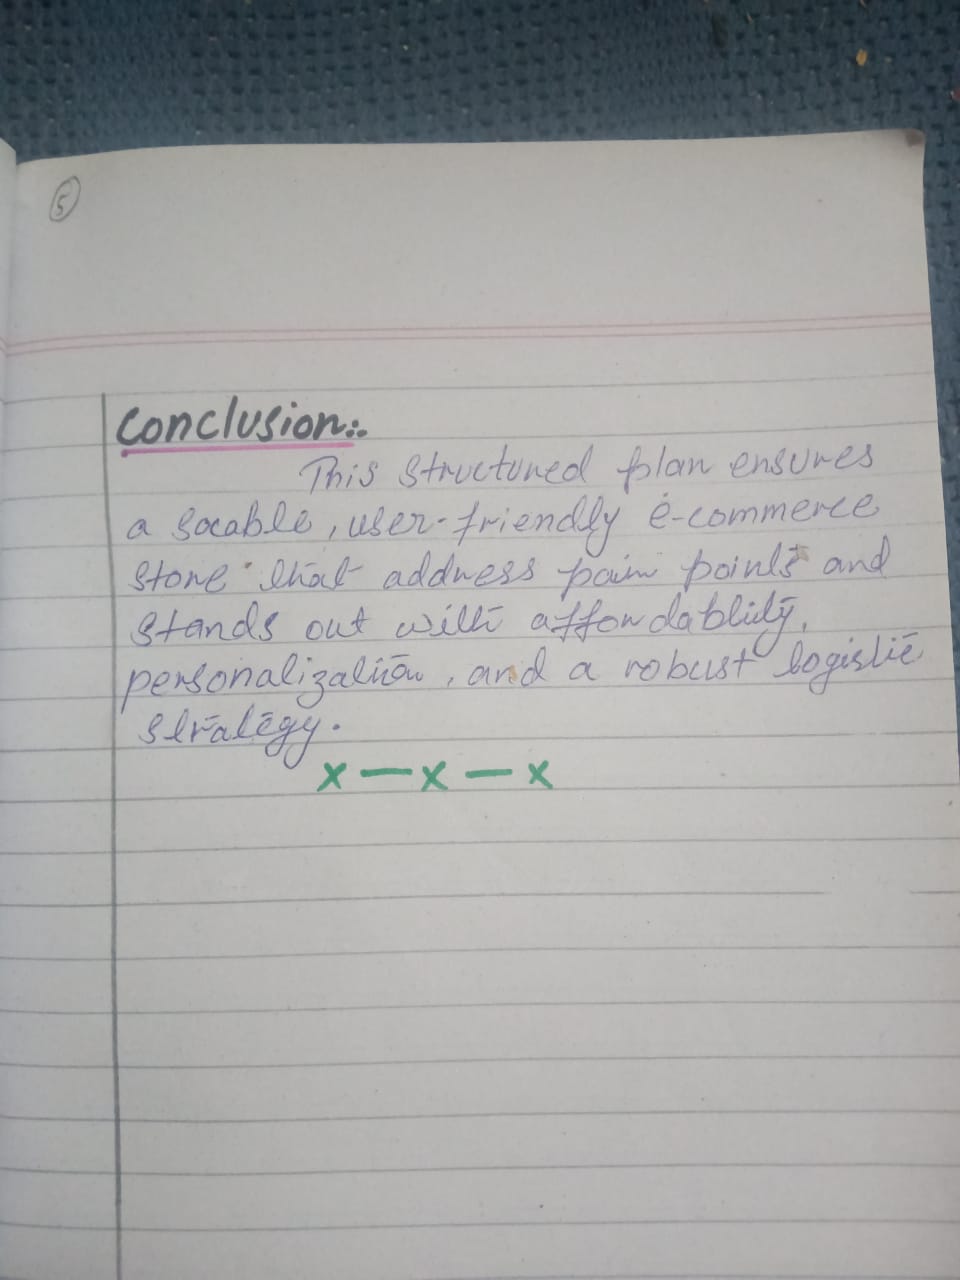 5
Conclusion:-
This structured plan ensures
a scable, user-friendly e-commerce
store that address pain points and
stands out with affordablity,
personalization, and a robust logistic
strategy.
x — x — x